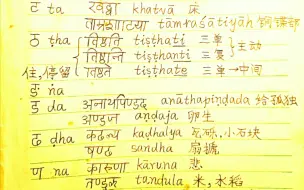 ट ṭa खट्वा khatvā 床
ताम्रशाटिया tāmraśāṭiyāḥ 铜鍱部
ठ ṭha तिष्ठति tiṣṭhati 三单 主动
तिष्ठन्ति tiṣṭhanti 三复
住,停留 तिष्ठते tiṣṭhate 三单→中间
ङ ṅa
ड ḍa अनाथपिण्डद anāthapiṇḍada 给孤独
अण्डज aṇḍaja 卵生
ढ ḍha kaḍhalya 瓦砾,小石块
षण्ढ sandha 扇搋
ण na कारुणा kāruna 悲
तण्डुल tandula 米,水稻